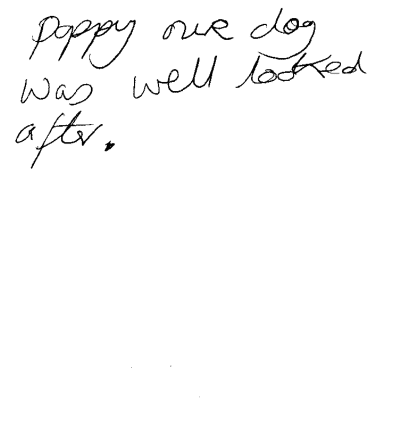 Poppy our dog
was well looked
after.